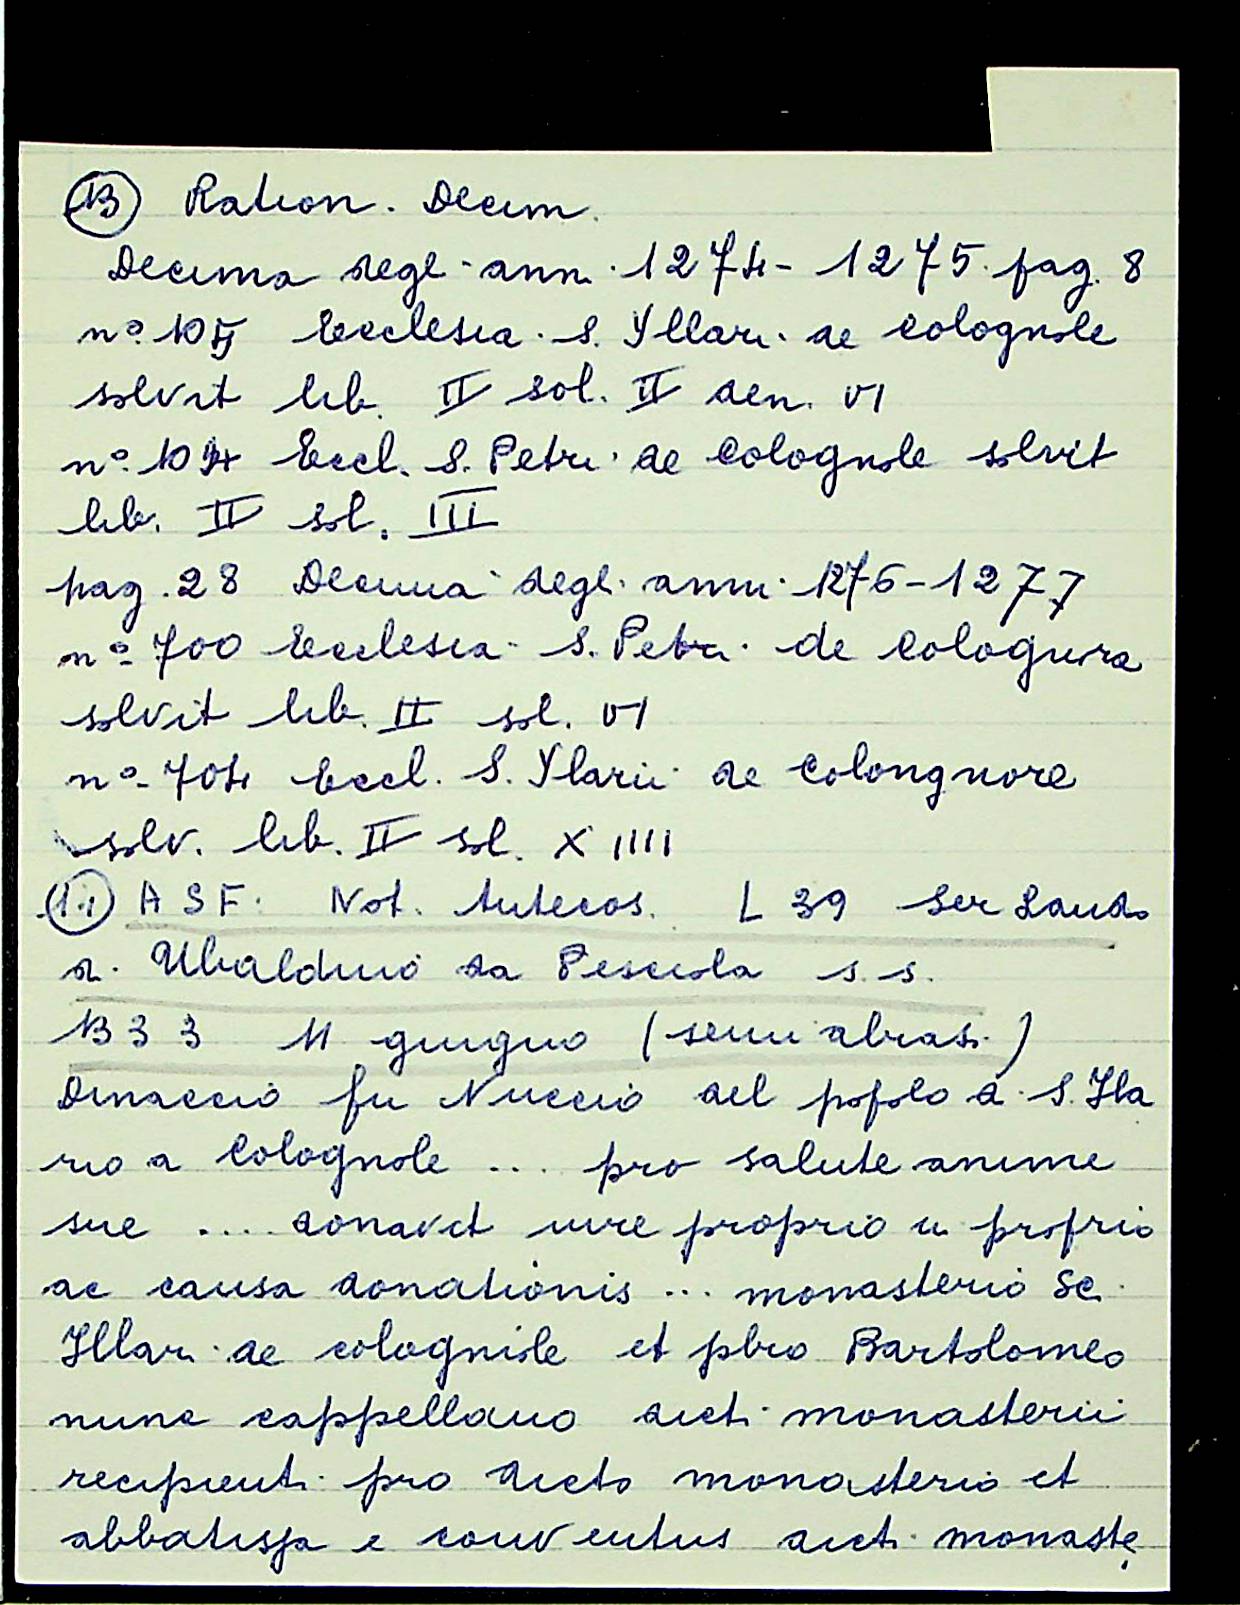 (13) Ration. Decim.
Decima degl. ann. 1274-1275. pag. 8
nº. 105 Ecclesia. S. Yllari. de Colognole
solvit lib. II sol. II den. VI
nº. 104 Eccl. S. Petri. de Colognole solvit
lib. II sol. III
pag. 28 Decima degl. anni. 1276-1277
nº 700 Ecclesia. S. Petri. de Cologura
solvit lib. II sol. VI
nº. 704 Eccl. S. Ylarii. de Colongnore
solv. lib. II sol. X IIII
ASF. Not. Antecos. L 39 Ser Lando
d. Ubaldino da Pesciola s.s.
B 3 3 11 giugno (semi abras.)
Dinaccio fu Nuccio del popolo d. S. Ila
rio a Colognole .... pro salute anime
sue .... donavit iure proprio in proprio
ac causa donationis ... monasterio Sc.
Illari. de colognole et pbro Bartolomeo
nunc cappellano dicti. monasterii
recipienti. pro dicto monasterio et
abbatissa e conventus dicti. monaste